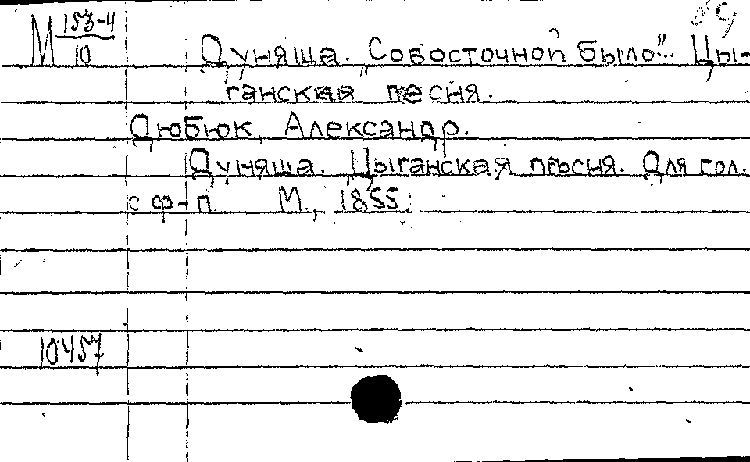 М 153-4/10
Дуняша. „Совосточной было". Цы-
ганская песня.
Дюбюк, Александр.
Дуняша. Цыганская пѣсня. Для гол.
с ф-п. М., 1855.
10457